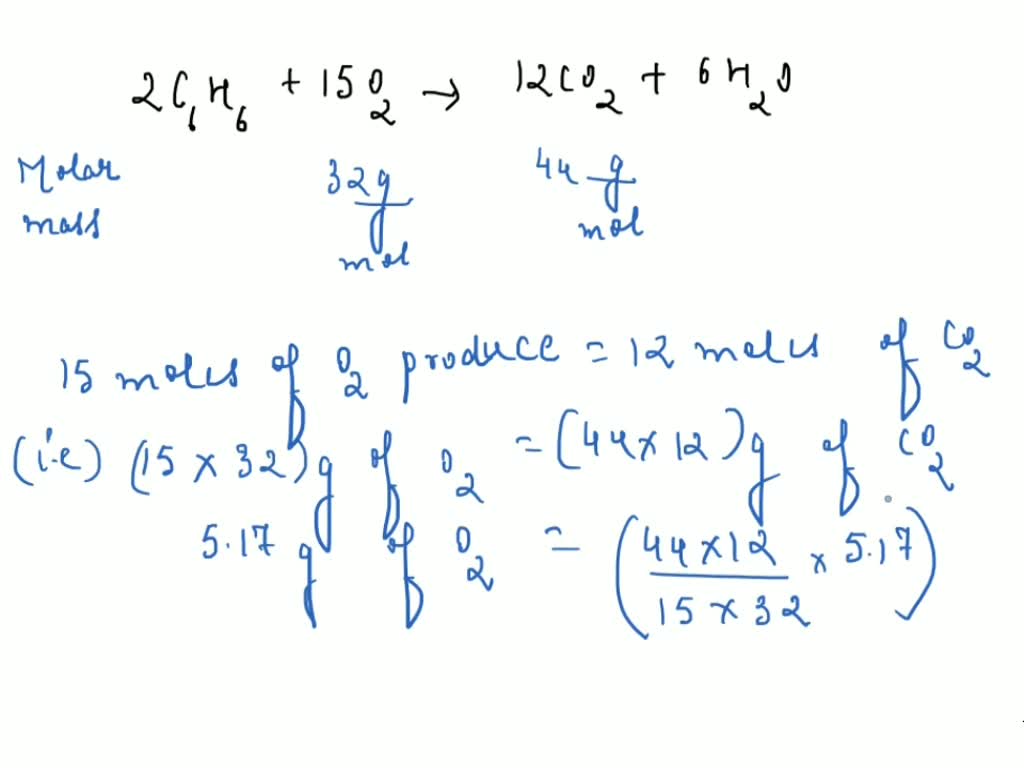 2C₆H₆ + 15O₂ → 12CO₂ + 6H₂O
Molar mass 32 g/mol 44 g/mol
15 moles of O₂ produce = 12 moles of CO₂
(i.e) (15 × 32) g of O₂ = (44 × 12) g of CO₂
5.17 g of O₂ = (44 × 12 / 15 × 32 × 5.17)